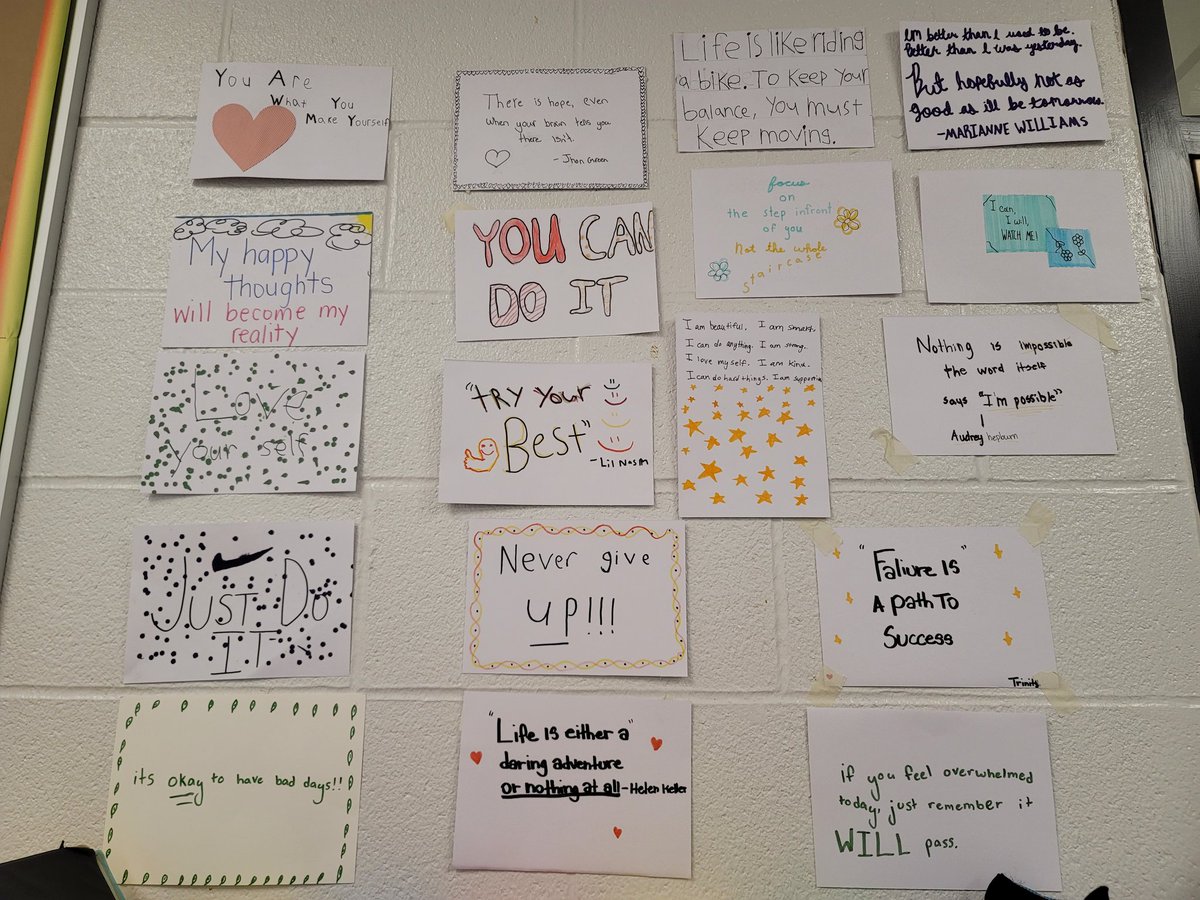 You Are
What You
Make Yourself
There is hope, even
When your brain tells you
there isn't.
- Jhon Green
Life is like riding
a bike. To Keep Your
balance, You must
Keep moving.
I'm better than I used to be.
Better than I was yesterday.
But hopefully not as
good as ill be tomorrow.
-MARIANNE WILLIAMS
My happy
thoughts
will become my
reality
YOU CAN
DO IT
focus
on
the step infront
of you
Not the whole
staircase
I can,
I will,
WATCH ME!
Love
your self
"TRY Your
Best"
-Lil Nas
I am beautiful. I am smart.
I can do anything. I am strong.
I love my self. I am kind.
I can do hard things. I am supportive
Nothing is impossible
the word itself
says "I'm possible"
Audrey hepburn
JUST DO
IT
Never give
up!!!
"Faliure Is"
A path To
Success
Trinity
its okay to have bad days!!
"Life is either a"
daring adventure
or nothing at all -Helen Keller
if you feel overwhelmed
today, just remember it
WILL pass.